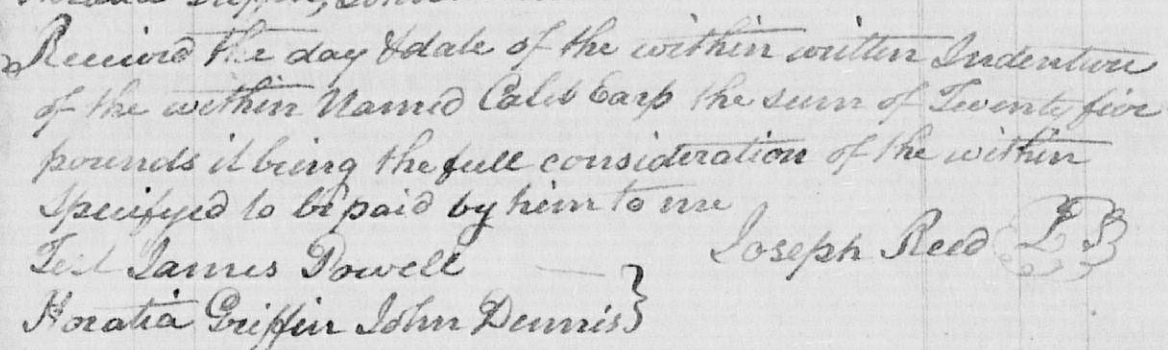 Received the day & date of the within written Indenture
of the within Named Caleb Earp the sum of Twenty five
pounds it being the full consideration of the within
Specifyed to be paid by him to me
Joseph Reed L S
Test James Powell
Horatia Griffin John Dennis